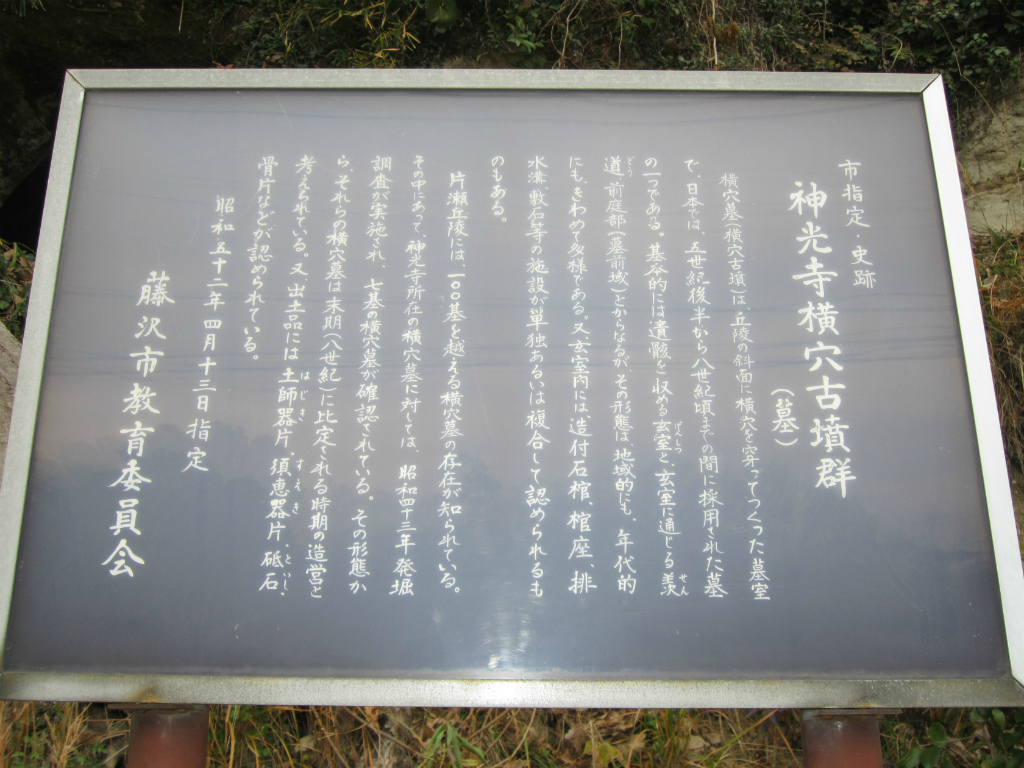 市指定・史跡
神光寺横穴古墳群
（墓）
横穴墓（横穴古墳）は、丘陵の斜面に横穴を穿ってつくった墓室
で、日本では、五世紀後半から八世紀頃までの間に採用された墓
の一つである。基本的には遺骸を収める玄室と、玄室に通じる羨
げんしつ
せん
道、前庭部（墓前域）とからなるが、その形態は、地域的にも、年代的
どう
にも、きわめて多様である。又玄室内には、造付石棺、棺座、排
水溝、敷石等の施設が単独あるいは複合して認められるも
のもある。
片瀬丘陵には、一〇〇基を越える横穴墓の存在が知られている。
その中にあって、神光寺所在の横穴墓に対しては、昭和四十三年発掘
調査が実施され、七基の横穴墓が確認されている。その形態か
ら、それらの横穴墓は末期（八世紀）に比定される時期の造営と
考えられている。又、出土品には土師器片、須恵器片、砥石、
はじき
すえき
といし
骨片などが認められている。
昭和五十二年四月十三日指定
藤沢市教育委員会